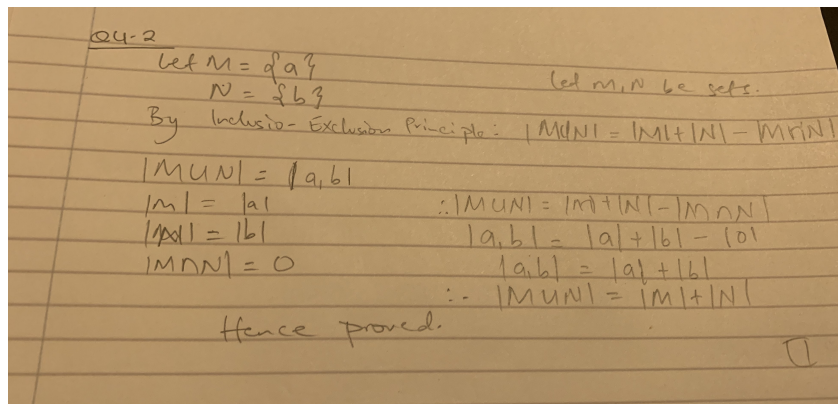 Q4-2
Let M = {a}
N = {b}
Let M, N be sets.
By Inclusio-Exclusion Principle: |M∪N| = |M|+|N| - |M∩N|
|M∪N| = |a,b|
|M| = |a|
|N| = |b|
|M∩N| = 0
∴ |M∪N| = |M|+|N|-|M∩N|
|a,b| = |a|+|b| - |0|
|a,b| = |a|+|b|
∴ |M∪N| = |M|+|N|
Hence proved.